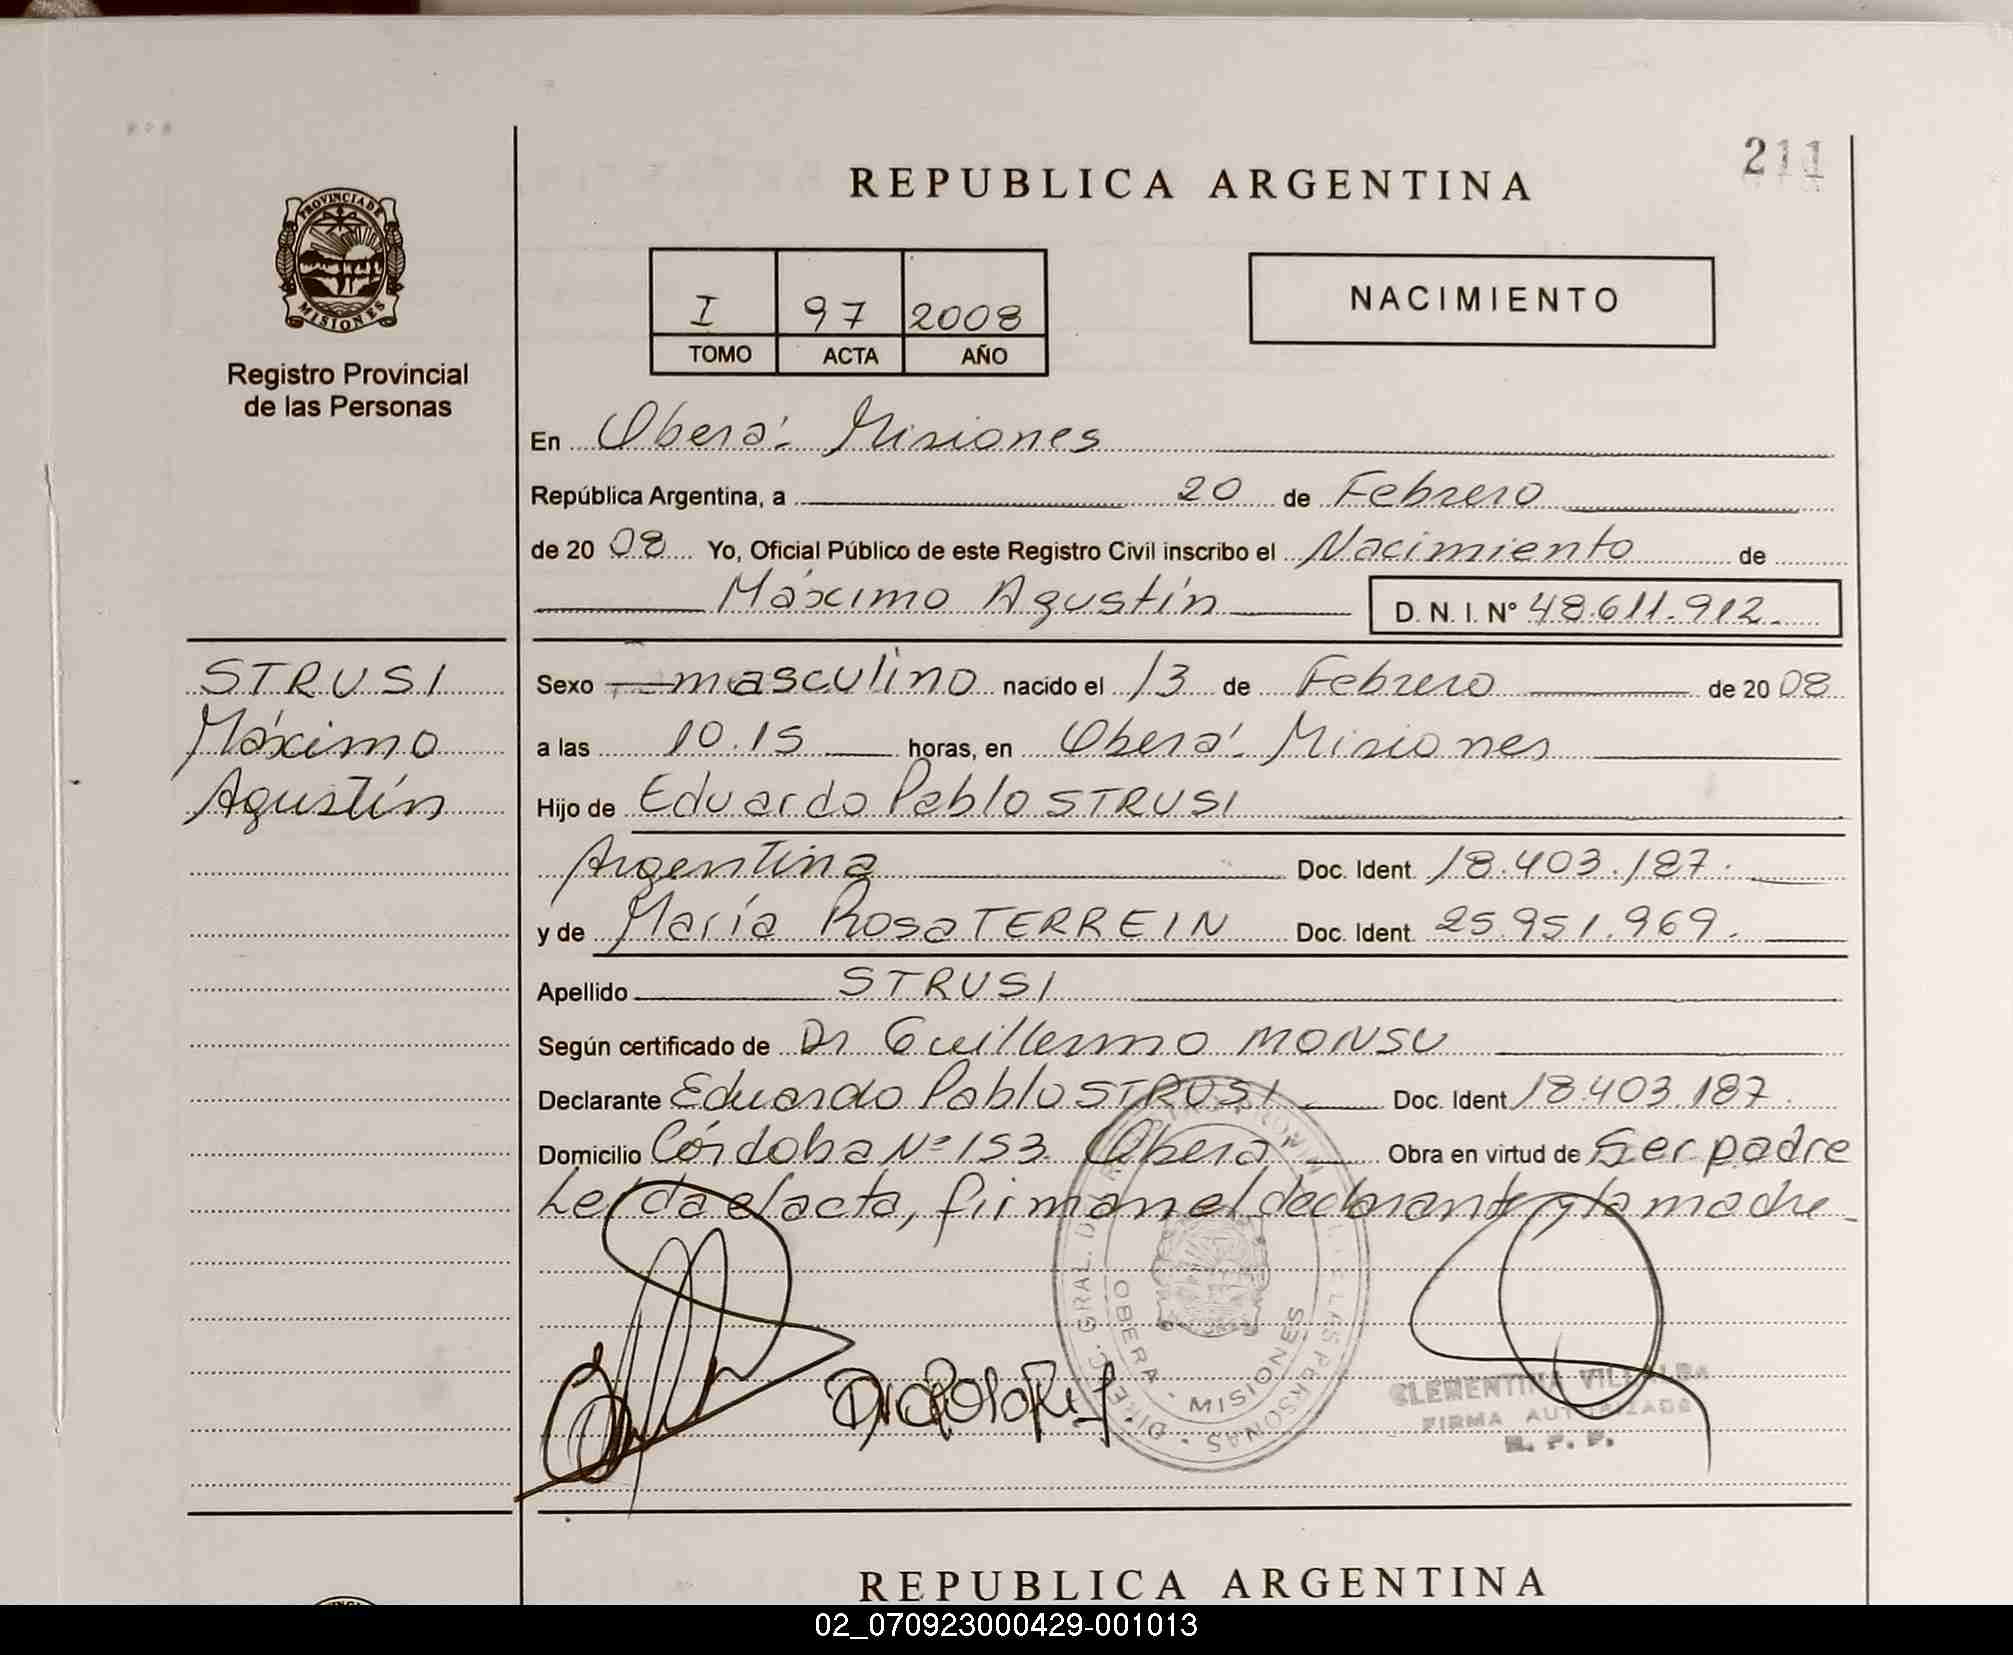 211
REPUBLICA ARGENTINA
PROVINCIA DE
MISIONES
Registro Provincial
de las Personas
I 97 2008
TOMO ACTA AÑO
NACIMIENTO
En Oberá - Misiones
República Argentina, a 20 de Febrero
de 2008 Yo, Oficial Público de este Registro Civil inscribo el Nacimiento de
Máximo Agustín D. N. I. Nº 48.611.912.
STRUSI
Máximo
Agustín
Sexo masculino nacido el 13 de Febrero de 2008
a las 10.15 horas, en Oberá - Misiones
Hijo de Eduardo Pablo STRUSI
Argentina Doc. Ident. 18.403.187.
y de María Rosa TERREIN Doc. Ident. 25.951.969.
Apellido STRUSI
Según certificado de Dr Guillermo MONSU
Declarante Eduardo Pablo STRUSI Doc. Ident 18.403.187.
Domicilio Córdoba Nº 153 Oberá Obra en virtud de Ser padre
Leída el acta, firman el declarante y la madre
OBERA - MISIONES
CLEMENTINA VILLALBA
FIRMA AUTORIZADA
R. P. P.
REPUBLICA ARGENTINA
02_070923000429-001013